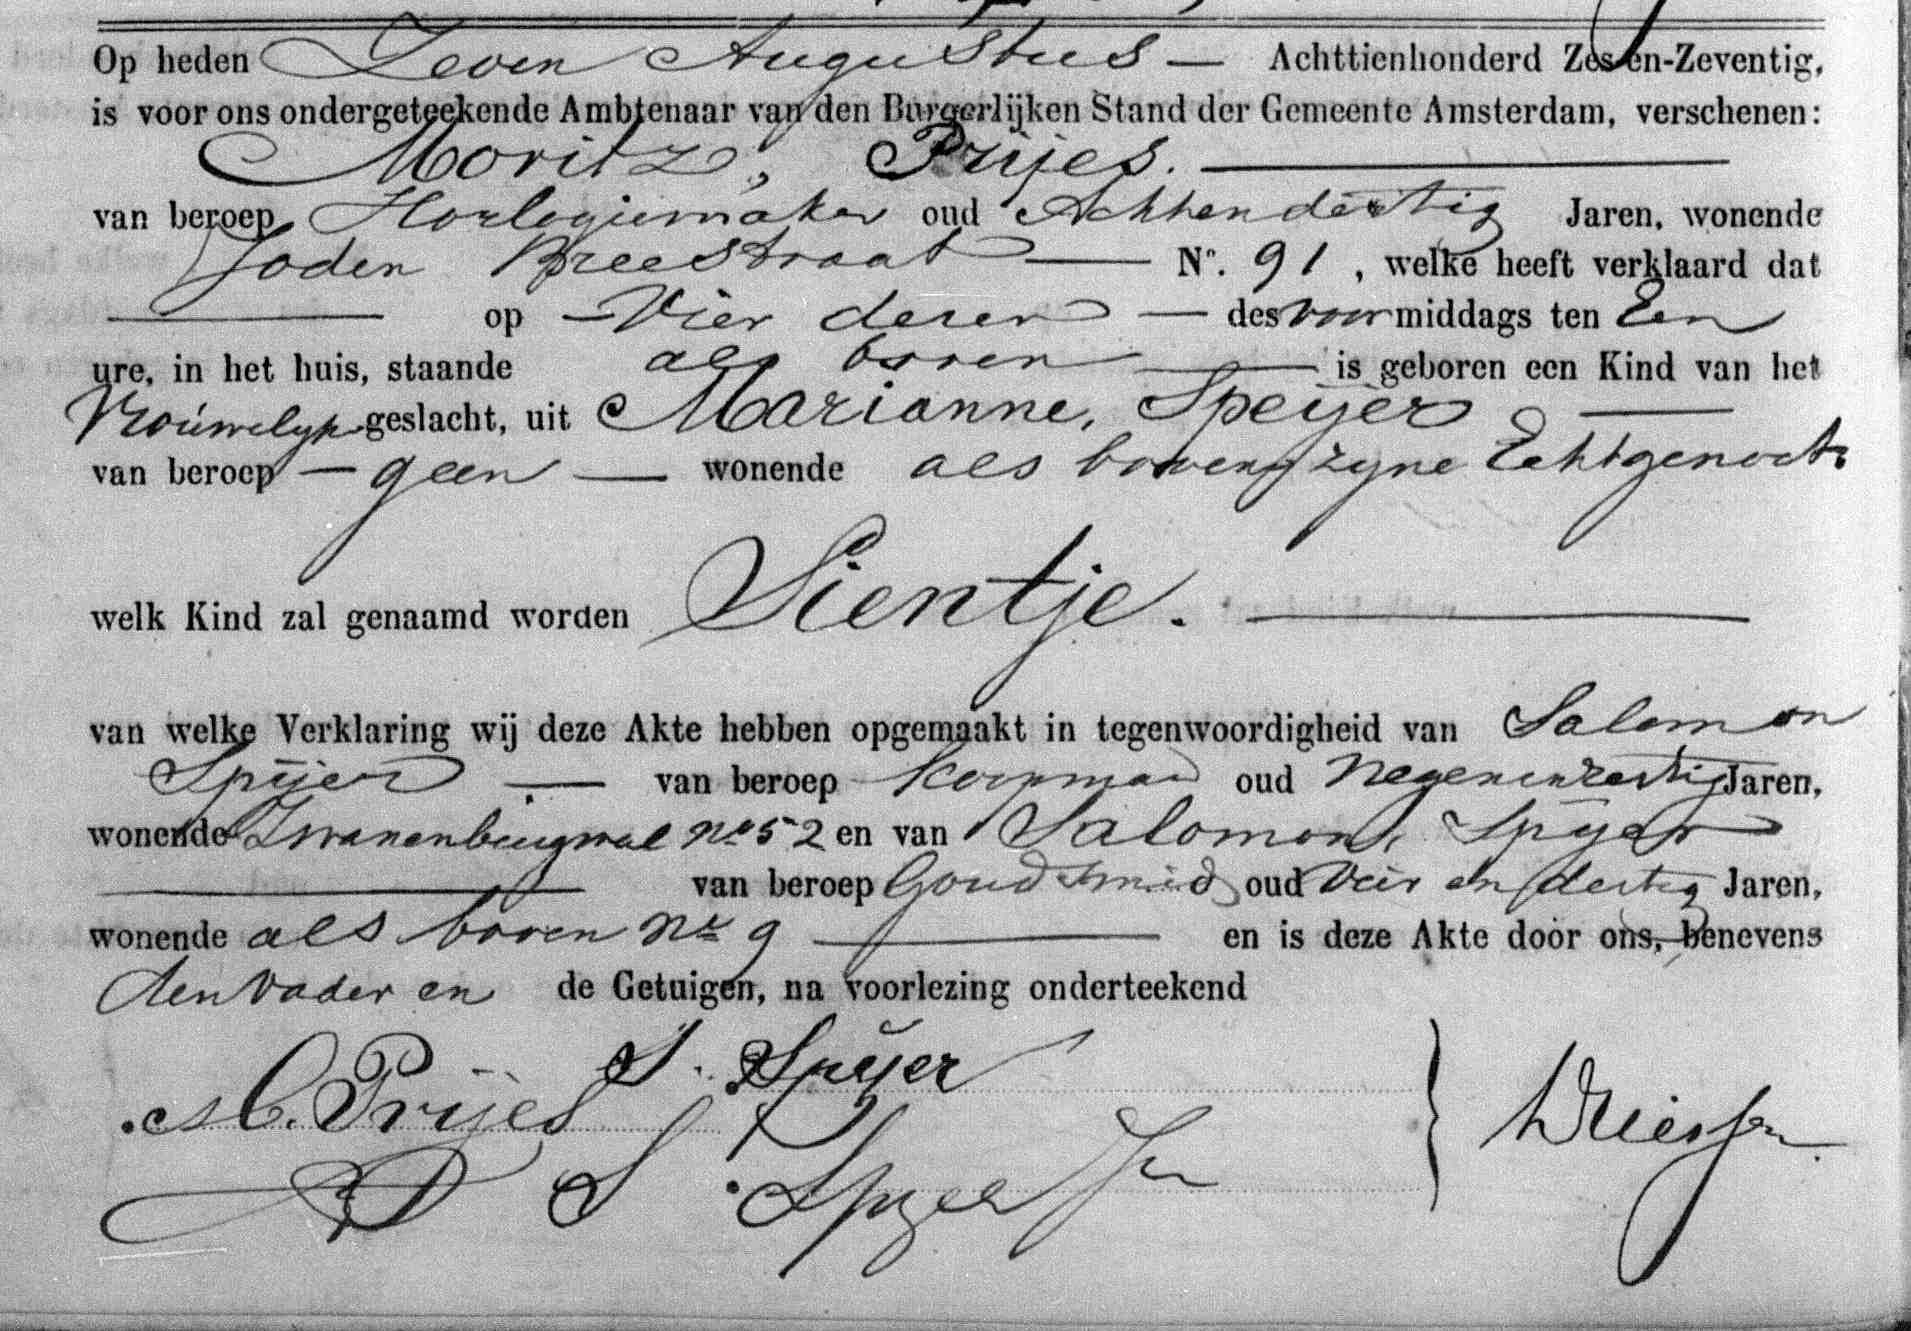 Op heden Zeven Augustus — Achttienhonderd Zes en-Zeventig,
is voor ons ondergeteekende Ambtenaar van den Burgerlijken Stand der Gemeente Amsterdam, verschenen:
Moritz, Prijes.
van beroep Horlogiemaker oud Achtendertig Jaren, wonende
Joden Breestraat — No. 91, welke heeft verklaard dat
— op — Vier dezer — des voormiddags ten Een
ure, in het huis, staande als boven — is geboren een Kind van het
Vrouwelijk geslacht, uit Marianne, Speijer —
van beroep — geen — wonende als boven, zyne Echtgenoote
welk Kind zal genaamd worden Sientje. —
van welke Verklaring wij deze Akte hebben opgemaakt in tegenwoordigheid van Salomon
Spijer — van beroep Koopman oud Negenenzestig Jaren,
wonende Zwanenburgwal No 52 en van Salomon, Spijer
— van beroep Goudsmid oud Vier en dertig Jaren,
wonende als boven No 9 — en is deze Akte door ons, benevens
den Vader en de Getuigen, na voorlezing onderteekend
S. Spijer
M. Prijes
S. Spijer Jr